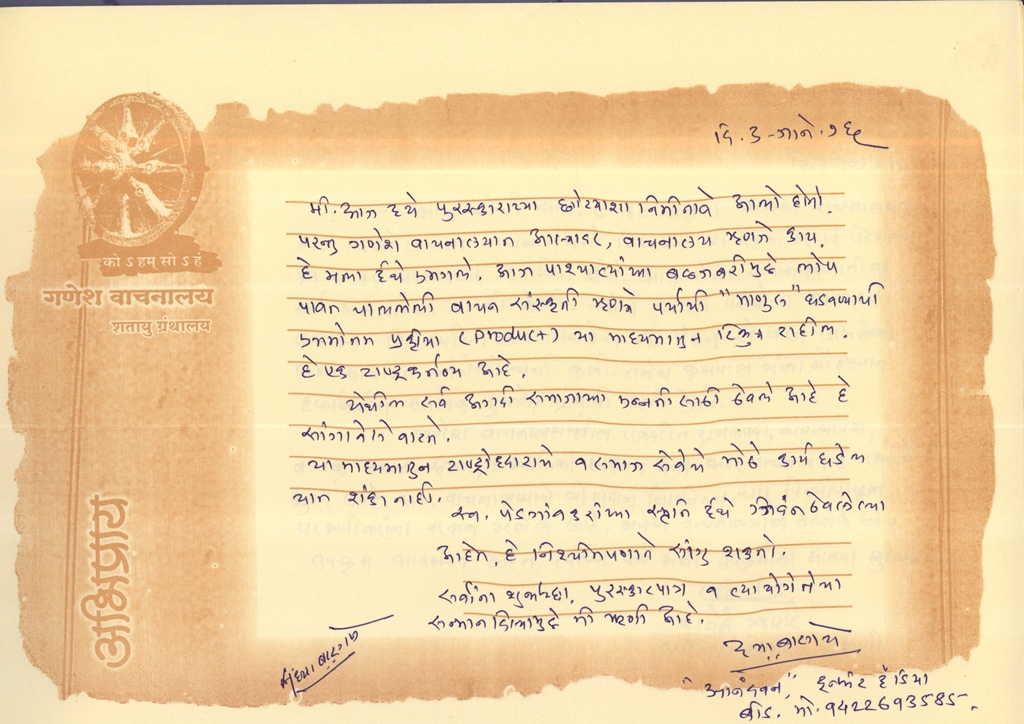 दि. ३-जाने. २६
को ऽ हम सो ऽ हं
गणेश वाचनालय
शतायु ग्रंथालय
अभिप्राय
मी. आज इथे पुरस्काराच्या छोट्याशा निमीत्ताने आलो होतो.
परन्तु गणेश वाचनालयात आल्यावर, वाचनालय म्हणजे काय.
हे मला इथे समजले. आज पाश्चात्यांच्या बळजबरीमुळे लोप
पावत चाललेली वाचन संस्कृती म्हणजे पर्यायी "माणुस" घडवण्याची
प्रक्रीया (Product) या माध्यमातुन टिकुन राहील.
हे एक राष्ट्रकर्तव्य आहे.
येथील सर्व अगदी समाजाच्या उन्नतीसाठी ठेवले आहे हे
सांगावेसे वाटते.
या माध्यमातुन राष्ट्रोध्दाराचे व समाज सेवेचे मोठे कार्य घडेल
यात शंका नाही.
स्व. पेडगांवकरांच्या स्मृति इथे जीवंत ठेवलेल्या
आहेत. हे निश्चीतपणाने सांगु शकतो.
सर्वांना शुभेच्छा. पुरस्कारपात्र व त्या योगे
सन्मान दिल्यामुळे मी ऋणी आहे.
"आनंदवन,"
बीड. मो. 9422693585.